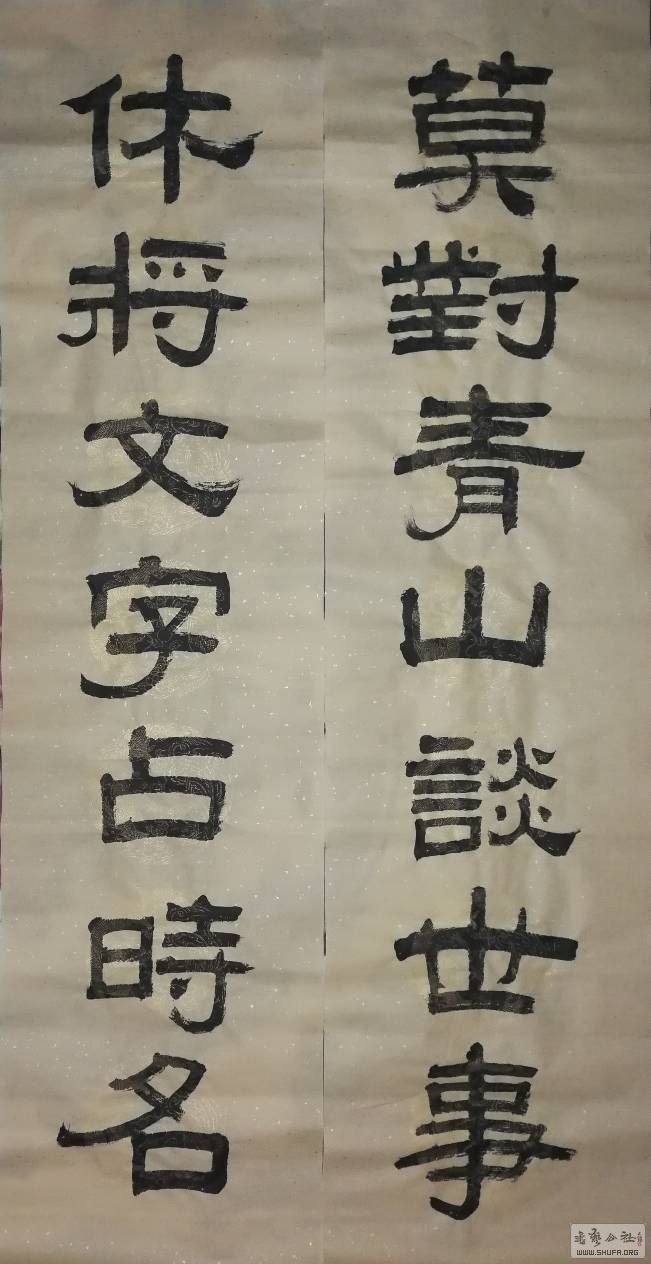 莫對青山談世事
休將文字占時名
書藝公社
WWW.SHUFA.ORG